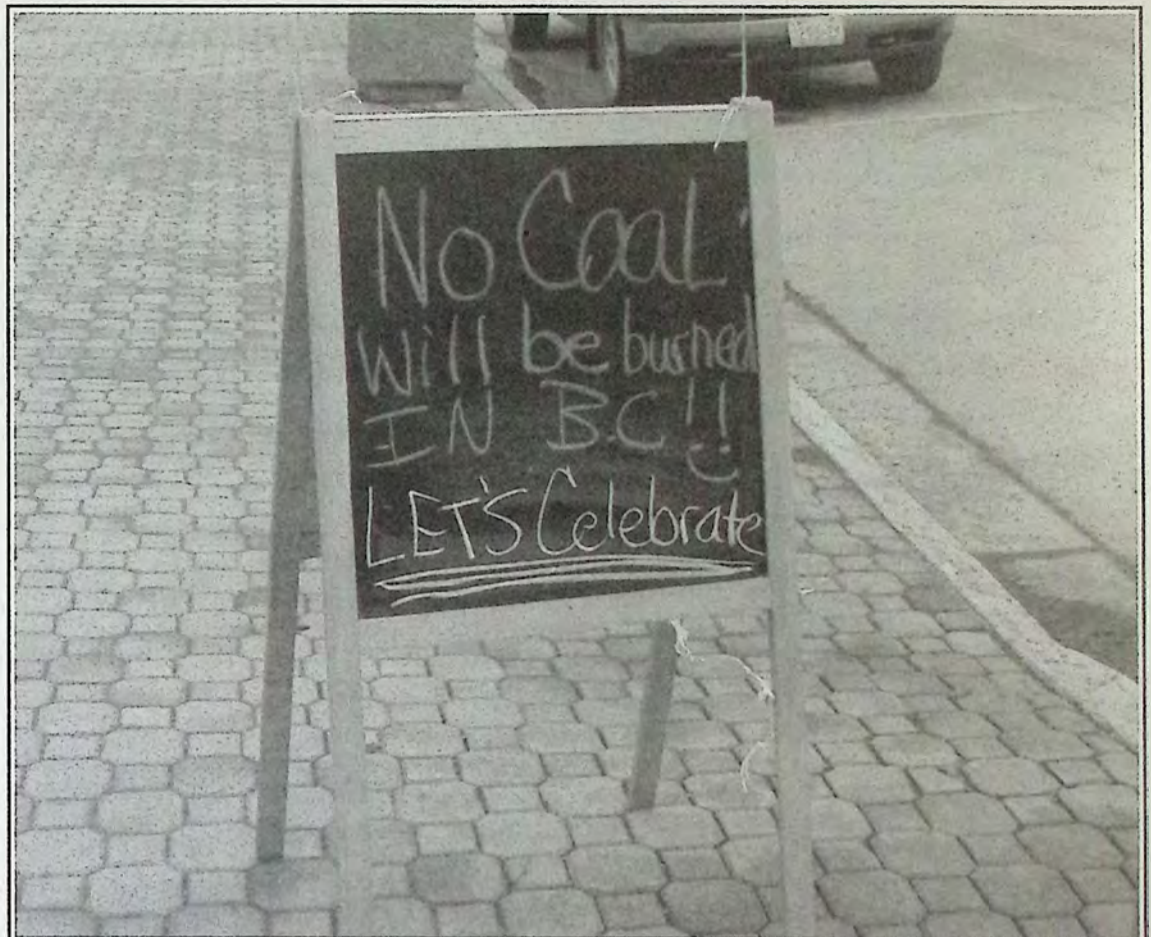 No Coal
will be burned
IN BC!!
LET'S Celebrate